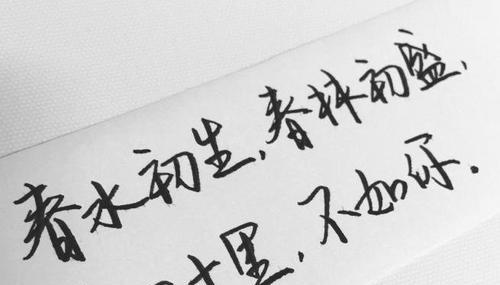 春水初生，春林初盛，
十里，不如你.